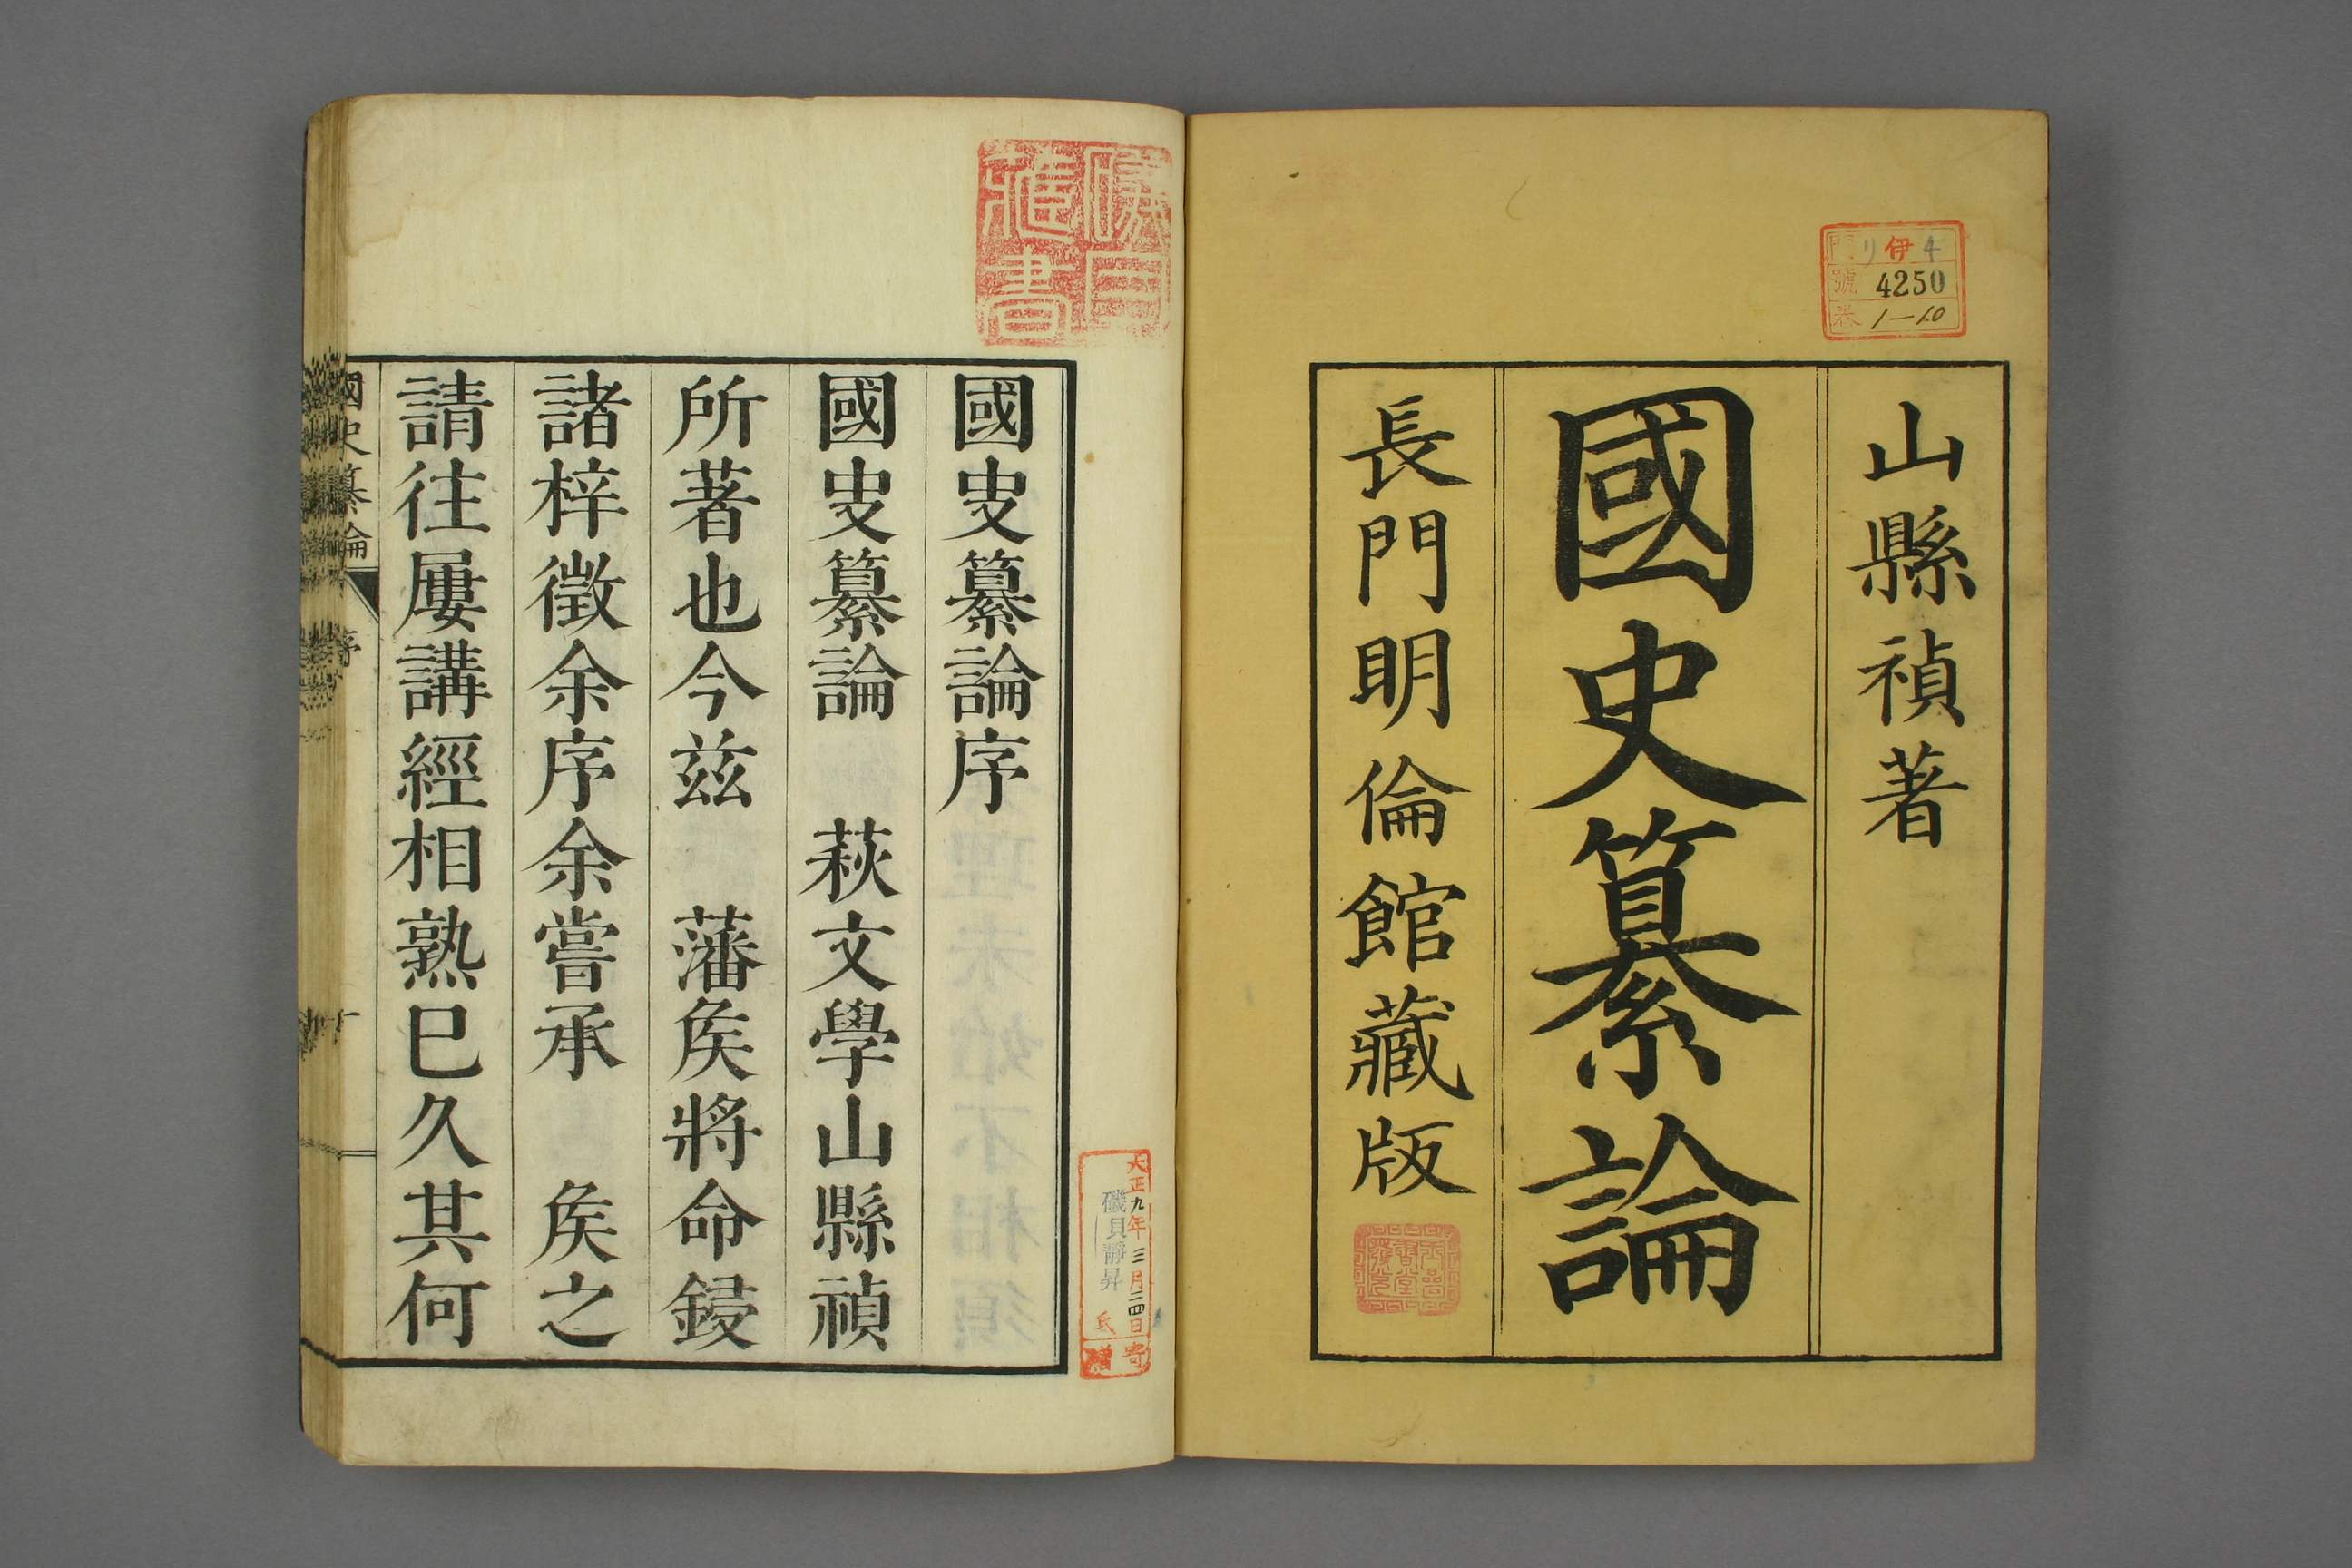 門 リ伊 4
號 4250
卷 1—10
山縣禎著
國史纂論
長門明倫館藏版
國史纂論序
國史纂論　萩文學山縣禎
所著也今茲　藩侯將命鋟
諸梓徵余序余嘗承　侯之
請往屢講經相熟已久其何
磯貝藏書
大正九年三月二四日寄贈
磯貝靜昇氏
國史纂論 序